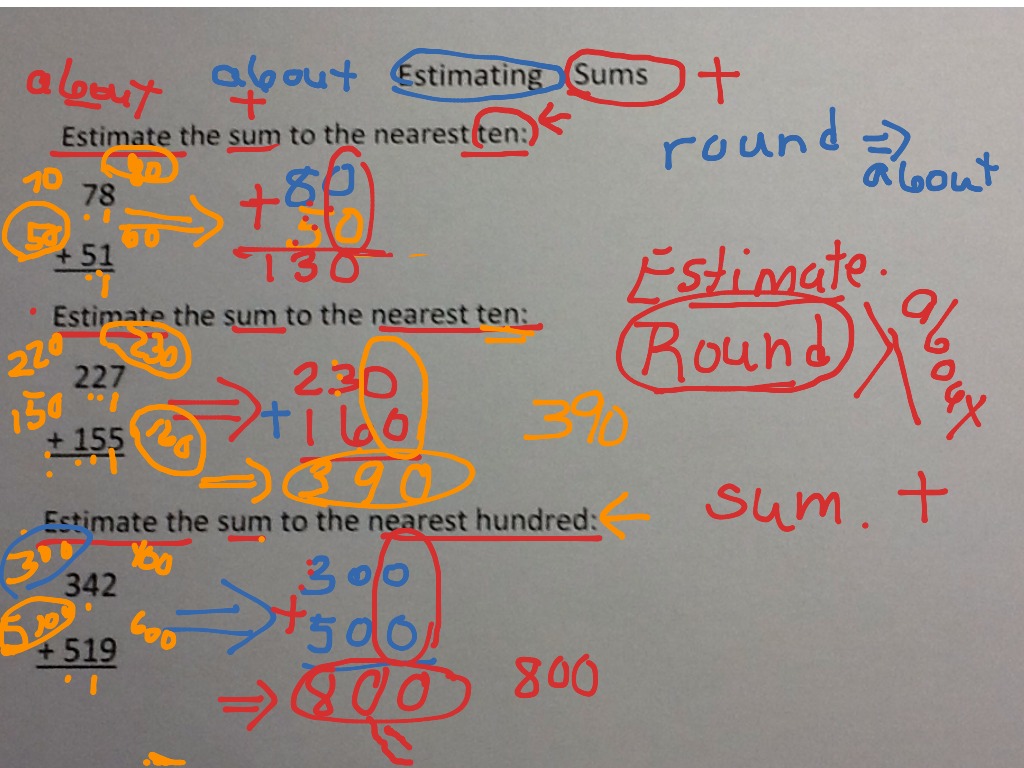 about about Estimating Sums +
+
Estimate the sum to the nearest ten:
round ⇒
about
70 80
78 80
50 60 + 50
+ 51 130
Estimate.
Round about
Estimate the sum to the nearest ten:
220 230
227 230
150 + 160 390
+ 155 160
390
sum. +
Estimate the sum to the nearest hundred:
300 400
342 300
500 600 + 500
+ 519
800 800